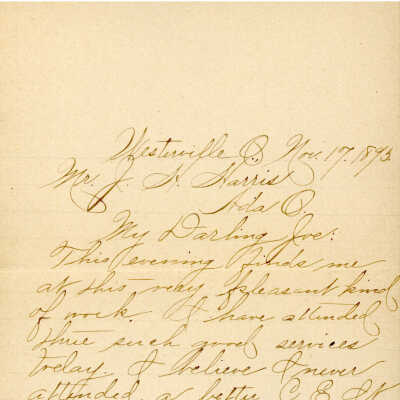 Westerville O. Nov. 17. 1893
Mr. J. H. Harris
Ada O.
My Darling Joe:
This evening finds me
at this very pleasant kind
of work. I have attended
three such good services
today. I believe I never
attended a better C. E.